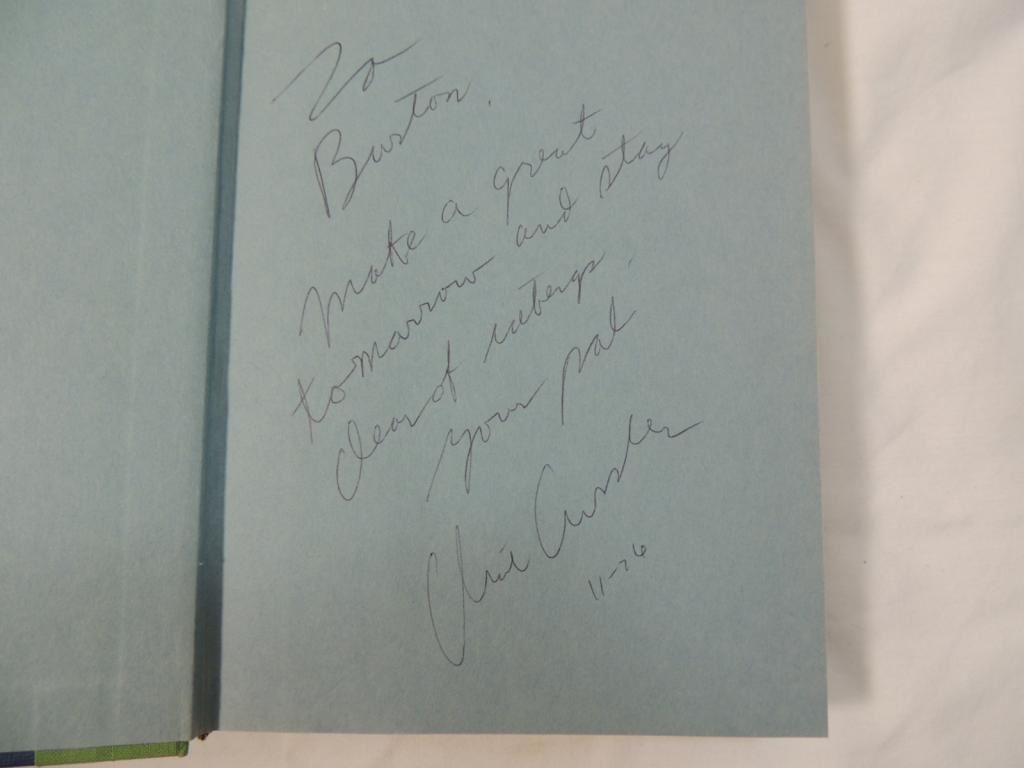 To
Burton,
Make a great
tomarrow and stay
clear of icebergs.
your pal
Clive Cussler
11-76